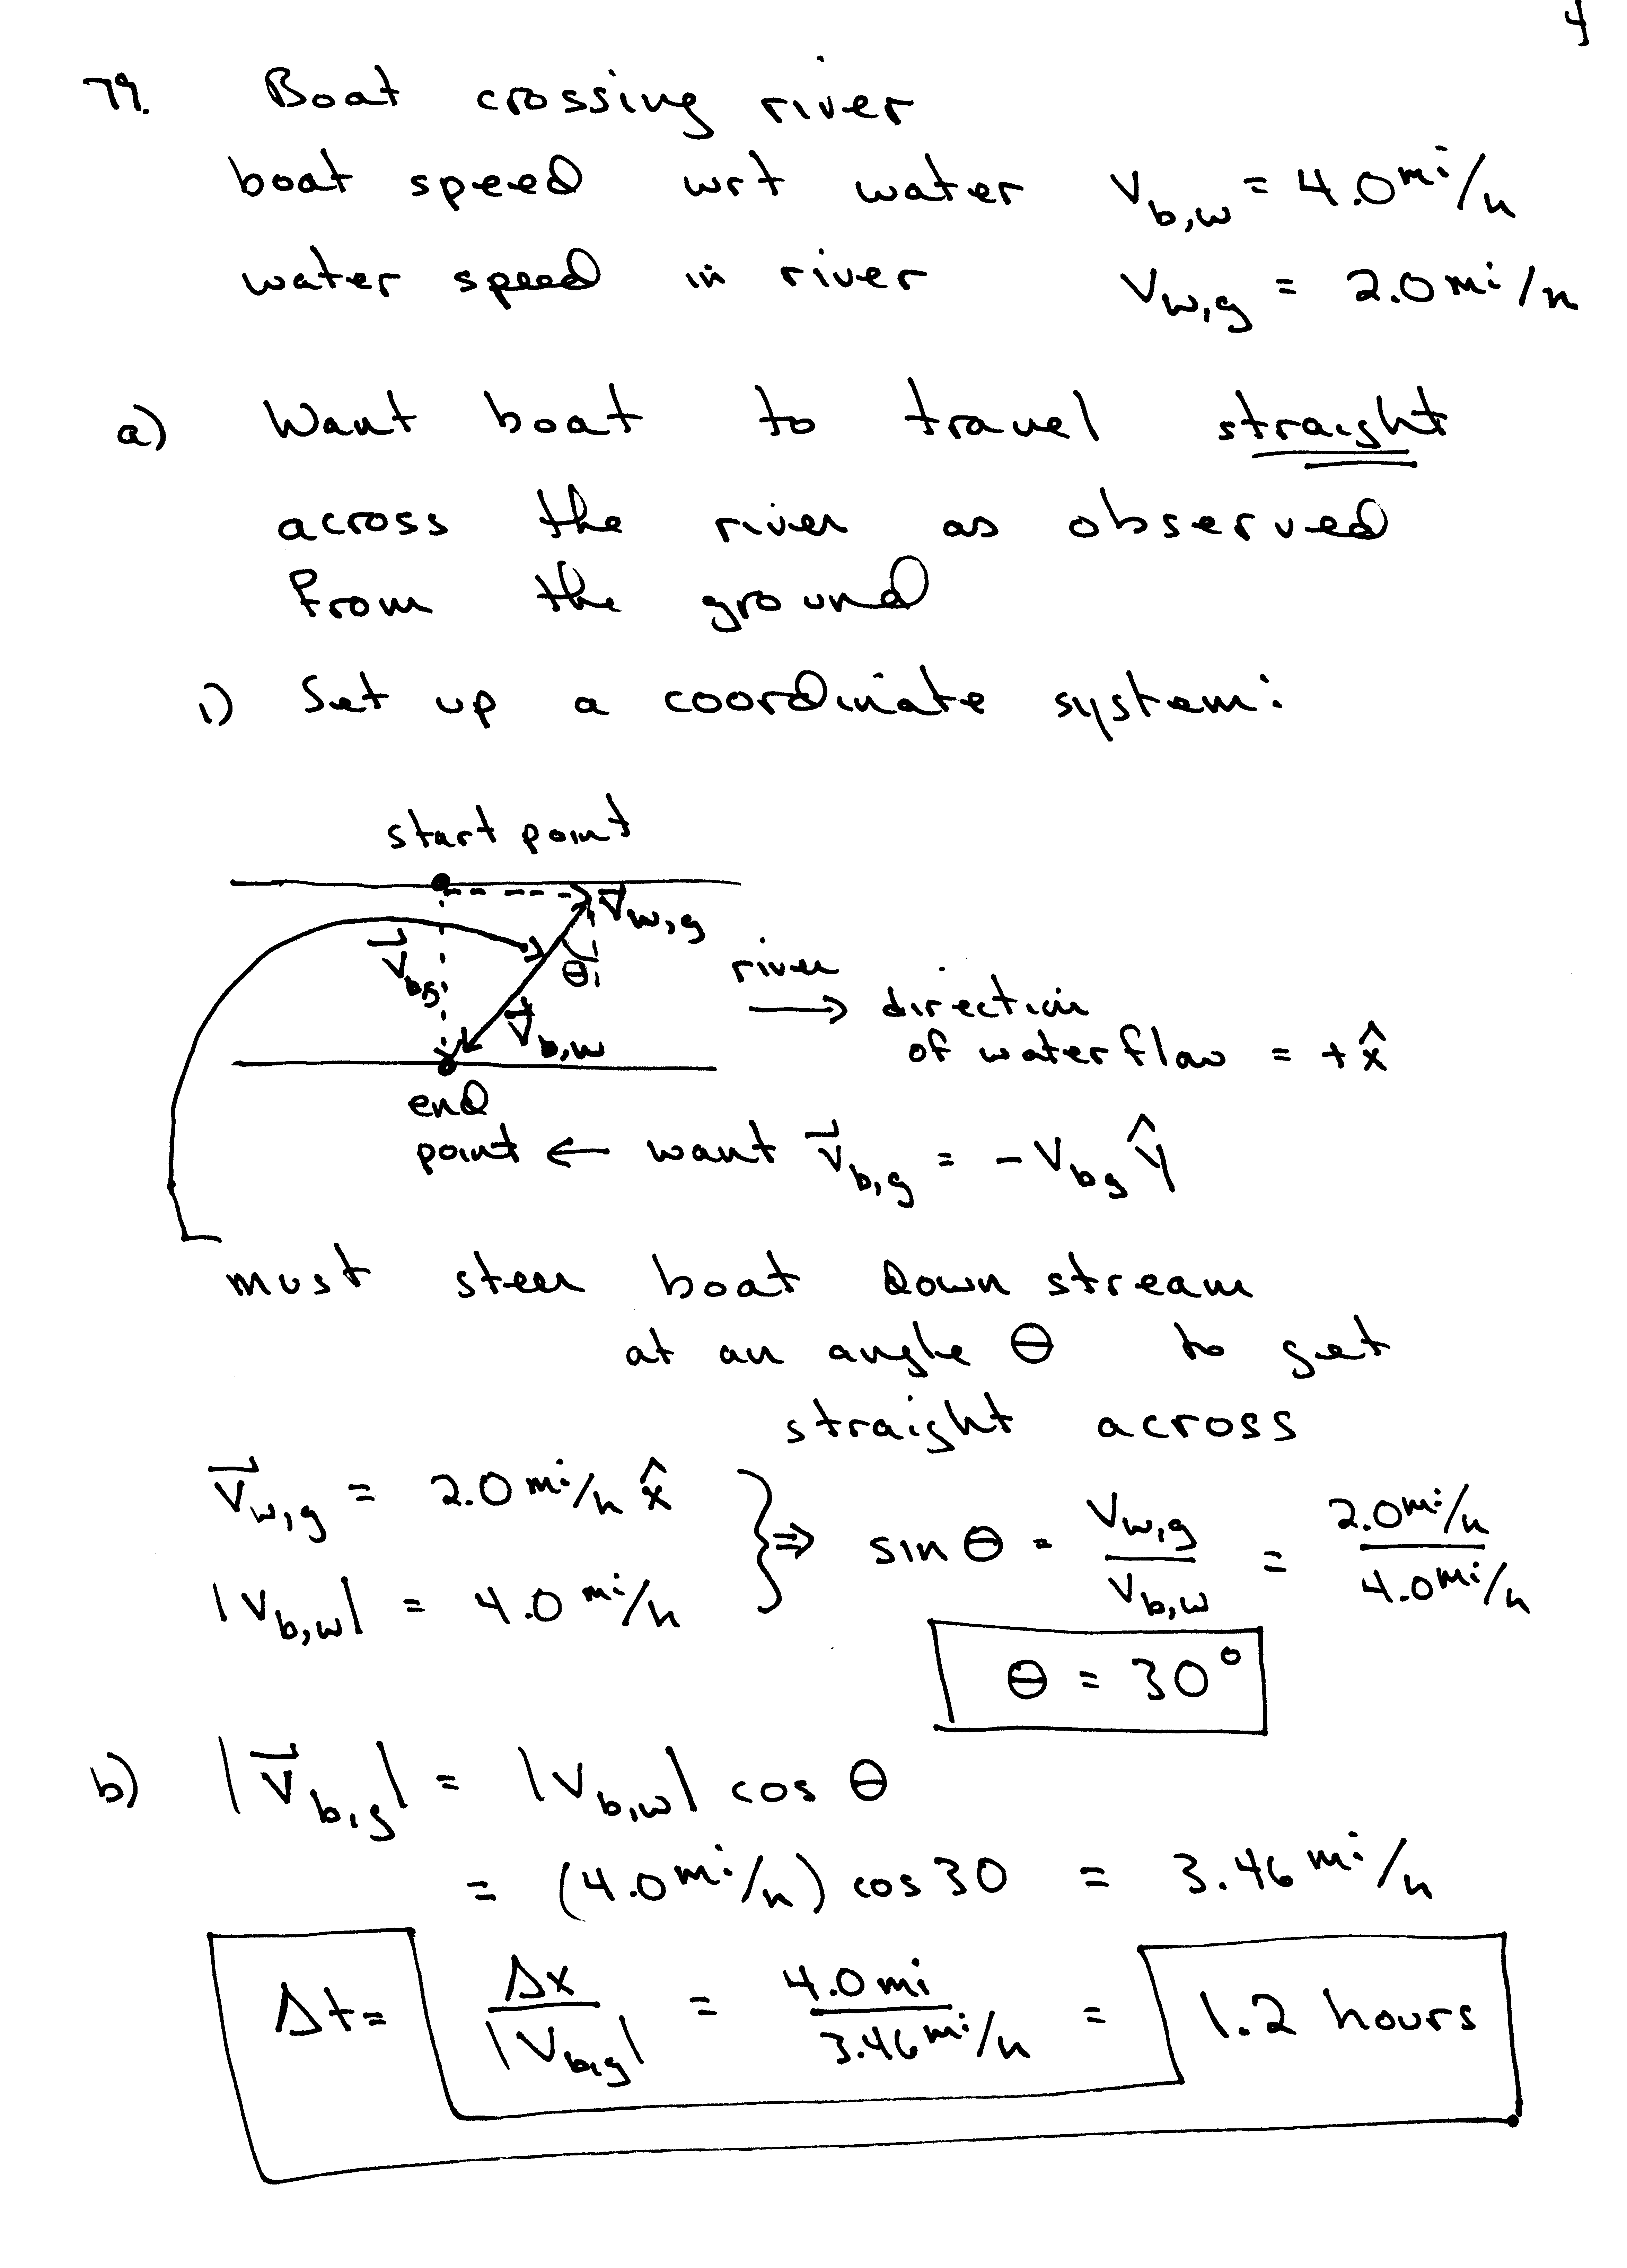 4
79. Boat crossing river
boat speed wrt water v_b,w = 4.0 mi/h
water speed in river v_w,g = 2.0 mi/h
a) Want boat to travel straight
across the river as observed
from the ground
i) Set up a coordinate system:
start point
v⃗_w,g
v⃗_bg
θ
river
→ direction
v⃗_b,w
of water flow = +x̂
end
point ← want v⃗_b,g = -v_bg ŷ
must steer boat down stream
at an angle θ to get
straight across
v⃗_w,g = 2.0 mi/h x̂
|v_b,w| = 4.0 mi/h } ⇒ sin θ = v_w,g / v_b,w = 2.0 mi/h / 4.0 mi/h
θ = 30°
b) |v⃗_b,g| = |v_b,w| cos θ
= (4.0 mi/h) cos 30 = 3.46 mi/h
Δt = Δx / |v_b,g| = 4.0 mi / 3.46 mi/h = 1.2 hours